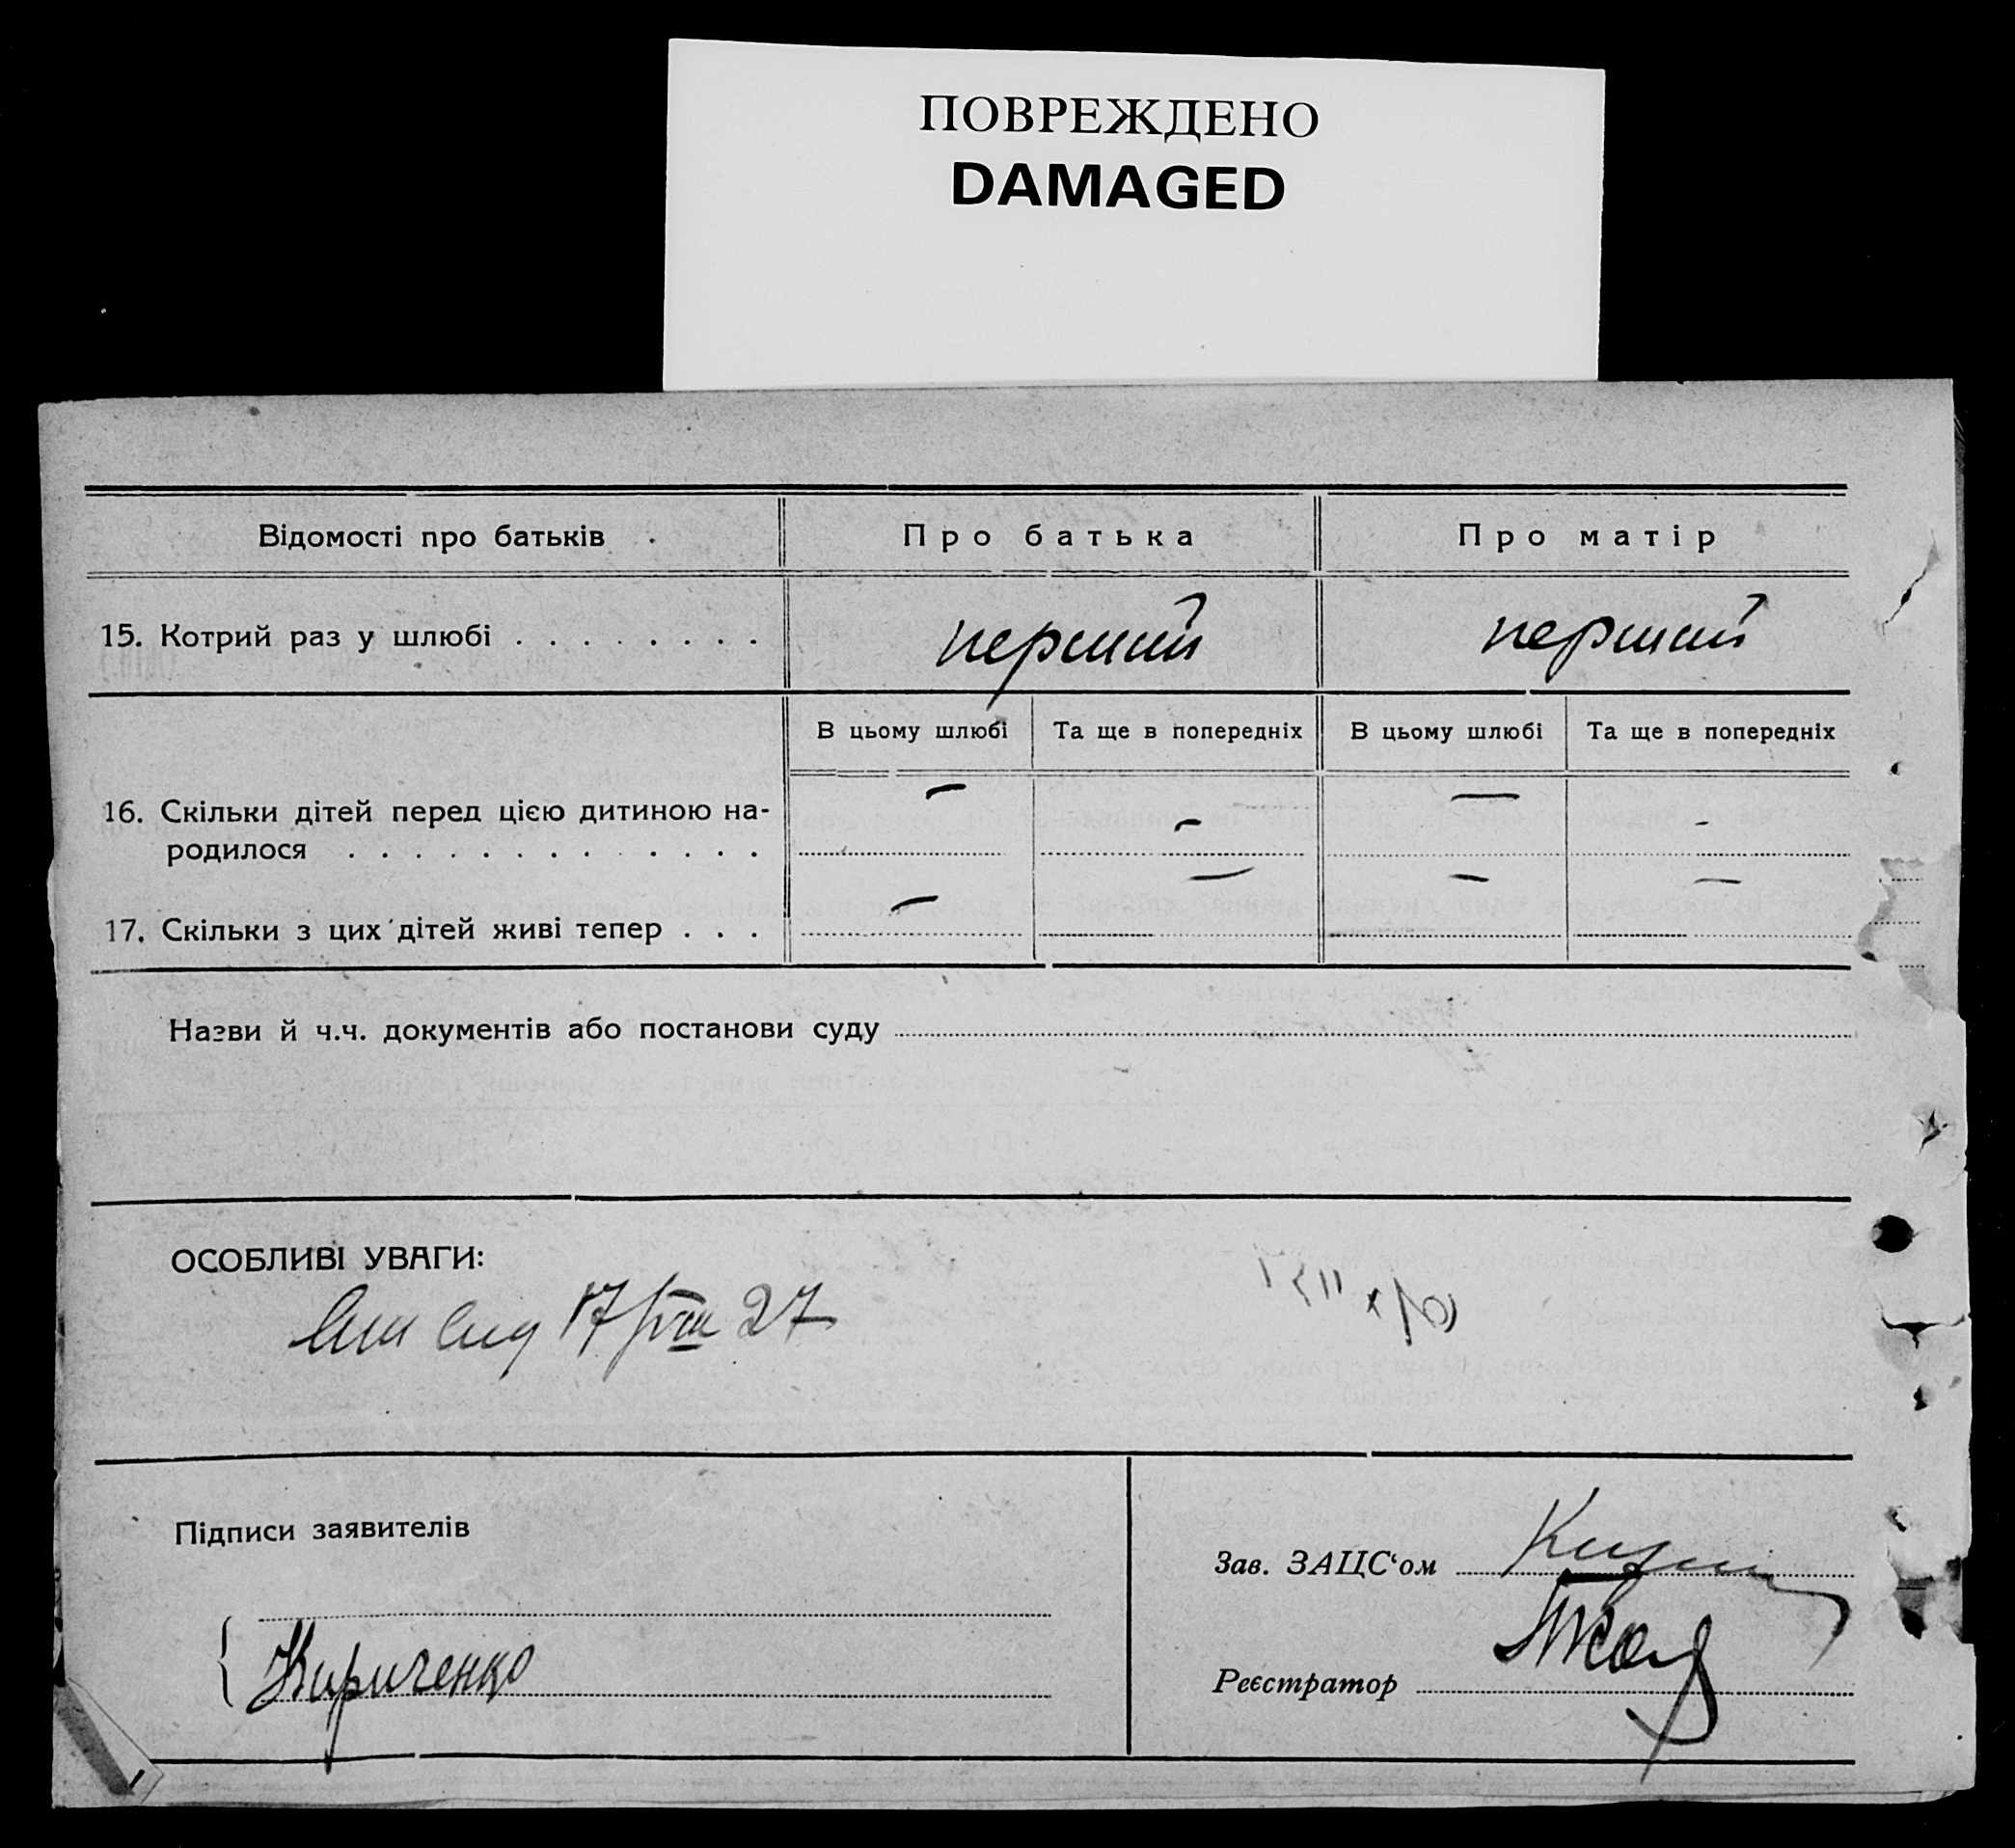 ПОВРЕЖДЕНО
DAMAGED
Відомості про батьків
Про батька
Про матір
15. Котрий раз у шлюбі . . . . . . . .
перший
перший
В цьому шлюбі
Та ще в попередніх
В цьому шлюбі
Та ще в попередніх
16. Скільки дітей перед цією дитиною на-
родилося . . . . . . . . . . . . .
— - — -
17. Скільки з цих дітей живі тепер . . .
— — — —
Назви й ч.ч. документів або постанови суду
ОСОБЛИВІ УВАГИ:
17/VIII 27
Підписи заявителів
Зав. ЗАЦС‘ом
Кириченко
Реєстратор